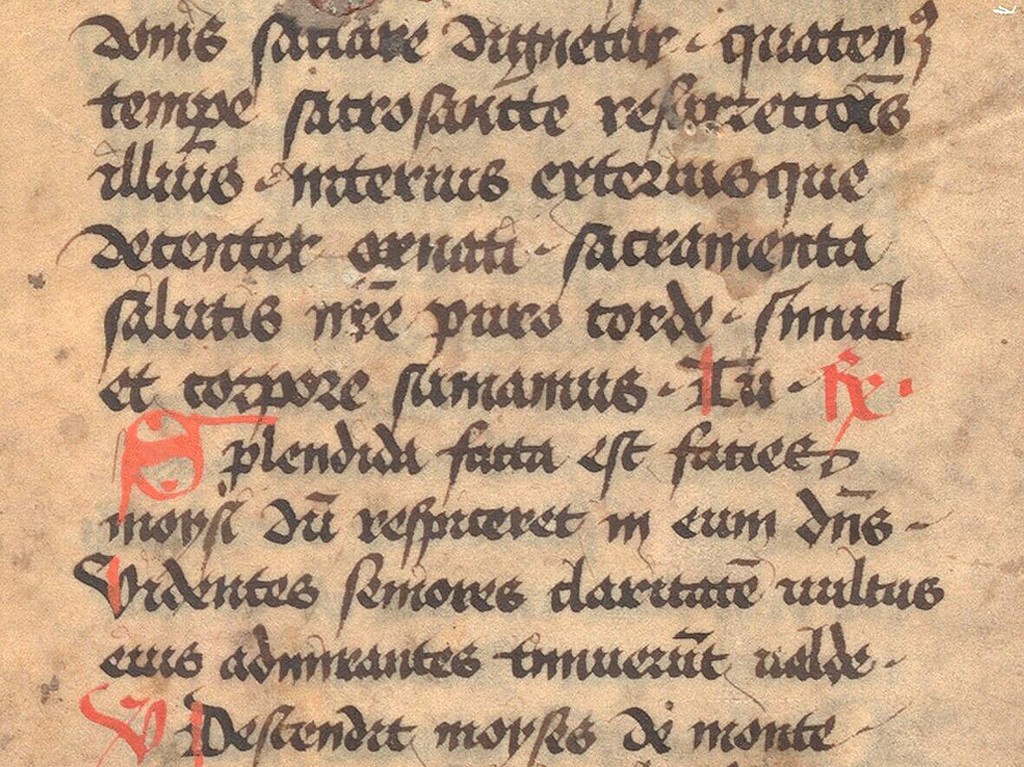 donis saciare dignetur · quatenꝰ
tempe sacrosancte resurrectiōis
illius · interius exteriusque
decenter ornati · sacramenta
salutis nr̄e puro corde · simul
et corpore sumamus · Tu · Re ·
Splendida facta est facies
moysi dū respiceret in eum dn̄s ·
Videntes seniores claritatē uultus
eius admirantes timuerūt ualde ·
V Descendit moyses de monte